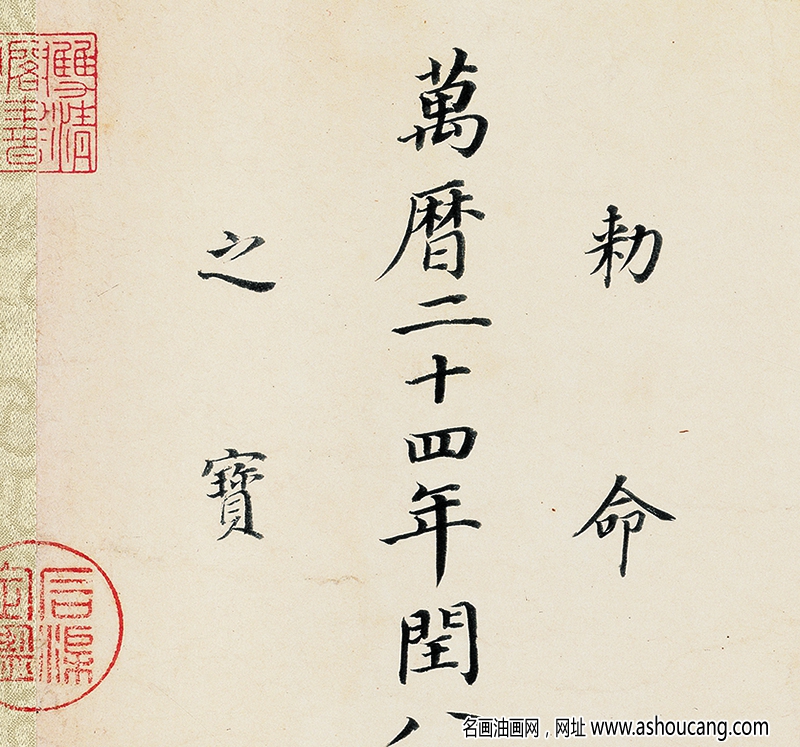 勅命
萬曆二十四年閏八
之寶
雙清
石渠
名画油画网,网址 www.ashoucang.com